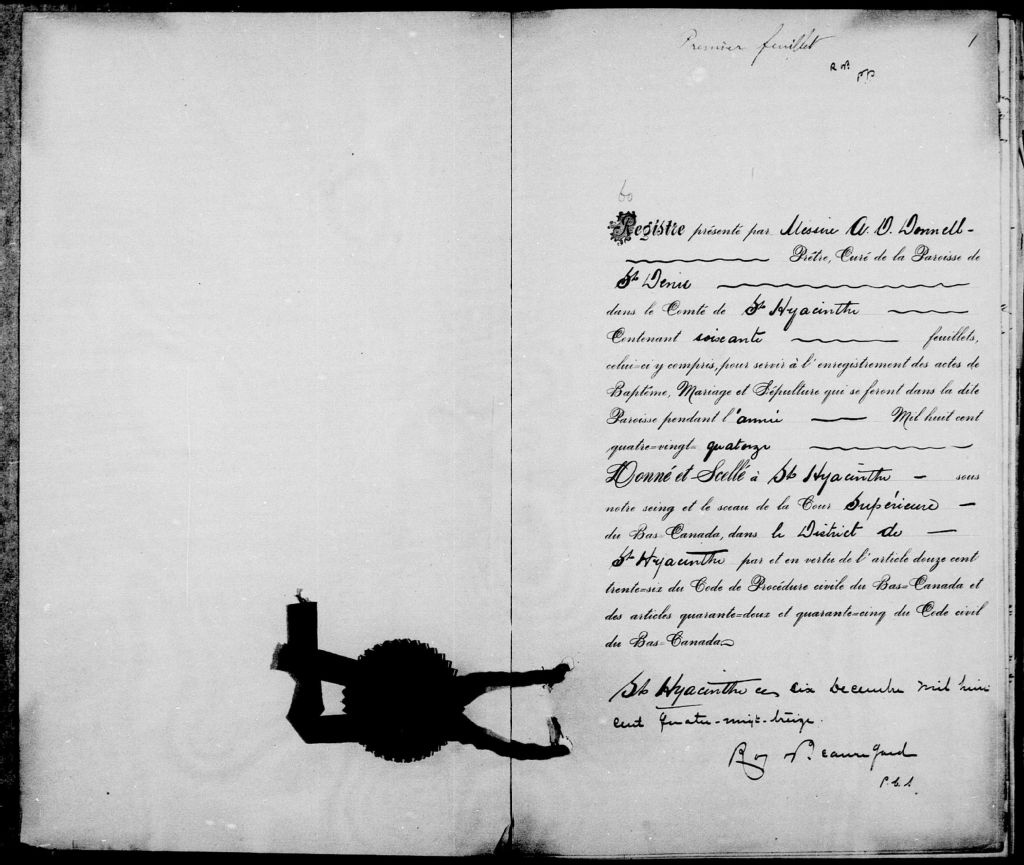 Premier feuillet
1
60
Registre présenté par Messire A. O. Donnell-
Prêtre, Curé de la Paroisse de
St Denis
dans le Comté de St Hyacinthe
Contenant soixante feuillets,
celui-ci y compris, pour servir à l'enregistrement des actes de
Baptême, Mariage et Sépulture qui se feront dans la dite
Paroisse pendant l'année Mil huit cent
quatre-vingt-quatorze
Donné et Scellé à St Hyacinthe - sous
notre seing et le sceau de la Cour Supérieure -
du Bas-Canada, dans le District de -
St Hyacinthe par et en vertu de l'article douze cent
trente-six du Code de Procédure civile du Bas-Canada et
des articles quarante-deux et quarante-cinq du Code civil
du Bas-Canada
St Hyacinthe ce six decembre mil huit
cent quatre-vingt-treize.
Roy & Beauregard
P.C.S.